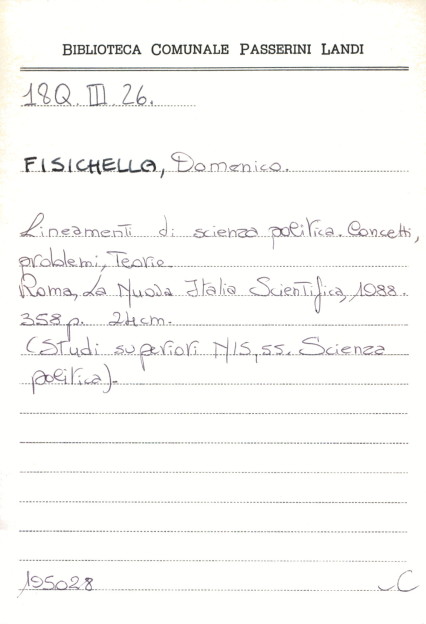 BIBLIOTECA COMUNALE PASSERINI LANDI
18Q. III. 26.
FISICHELLA, Domenico.
Lineamenti di scienza politica. Concetti,
problemi, Teorie.
Roma, La Nuova Italia Scientifica, 1988.
358 p. 24cm.
(Studi superiori NIS, 55. Scienza
politica).
195028